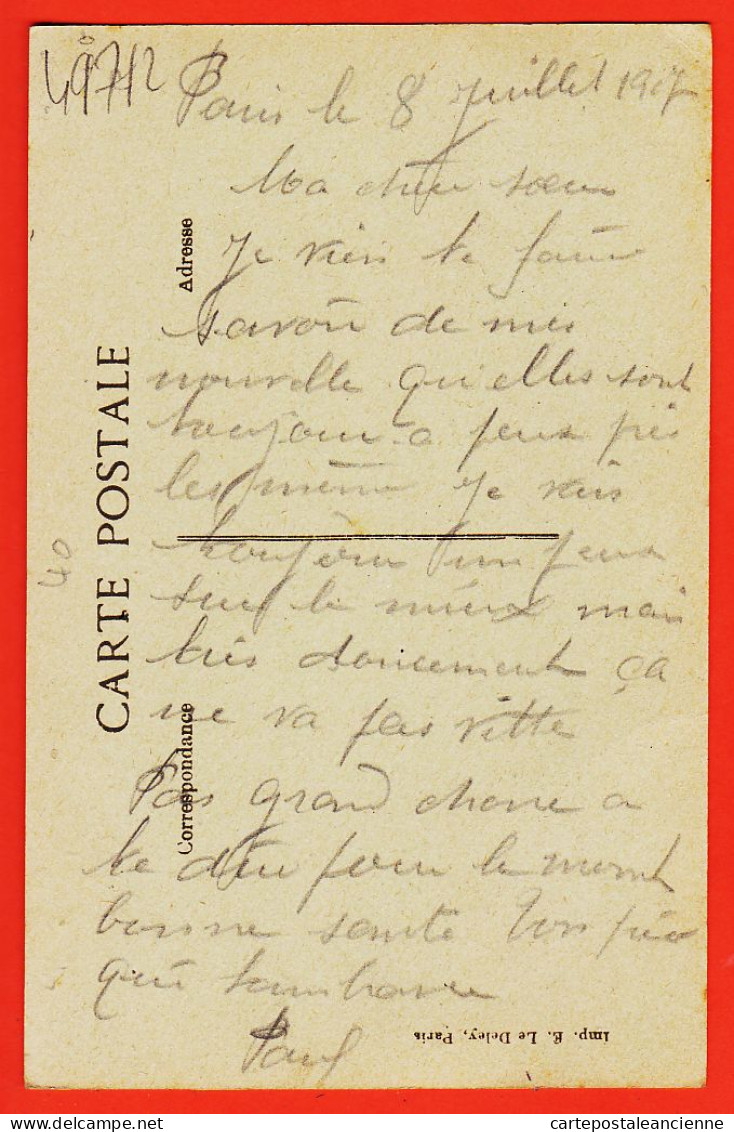 49712
Paris le 8 Juillet 1917
Ma cher sœur
Je vien te faire
savoir de mes
nouvelle qu'elles sont
toujour a peux près
les même Je vais
toujour un peux
sur le mieux mais
très doucement ça
ne va pas vitte
Pas grand chose a
te dire pour le moment
bonne santé Ton frère
qui t'embrasse
Paul
CARTE POSTALE
Adresse
Correspondance
40
Imp. E. Le Deley, Paris
Delcampe.net
cartepostaleancienne